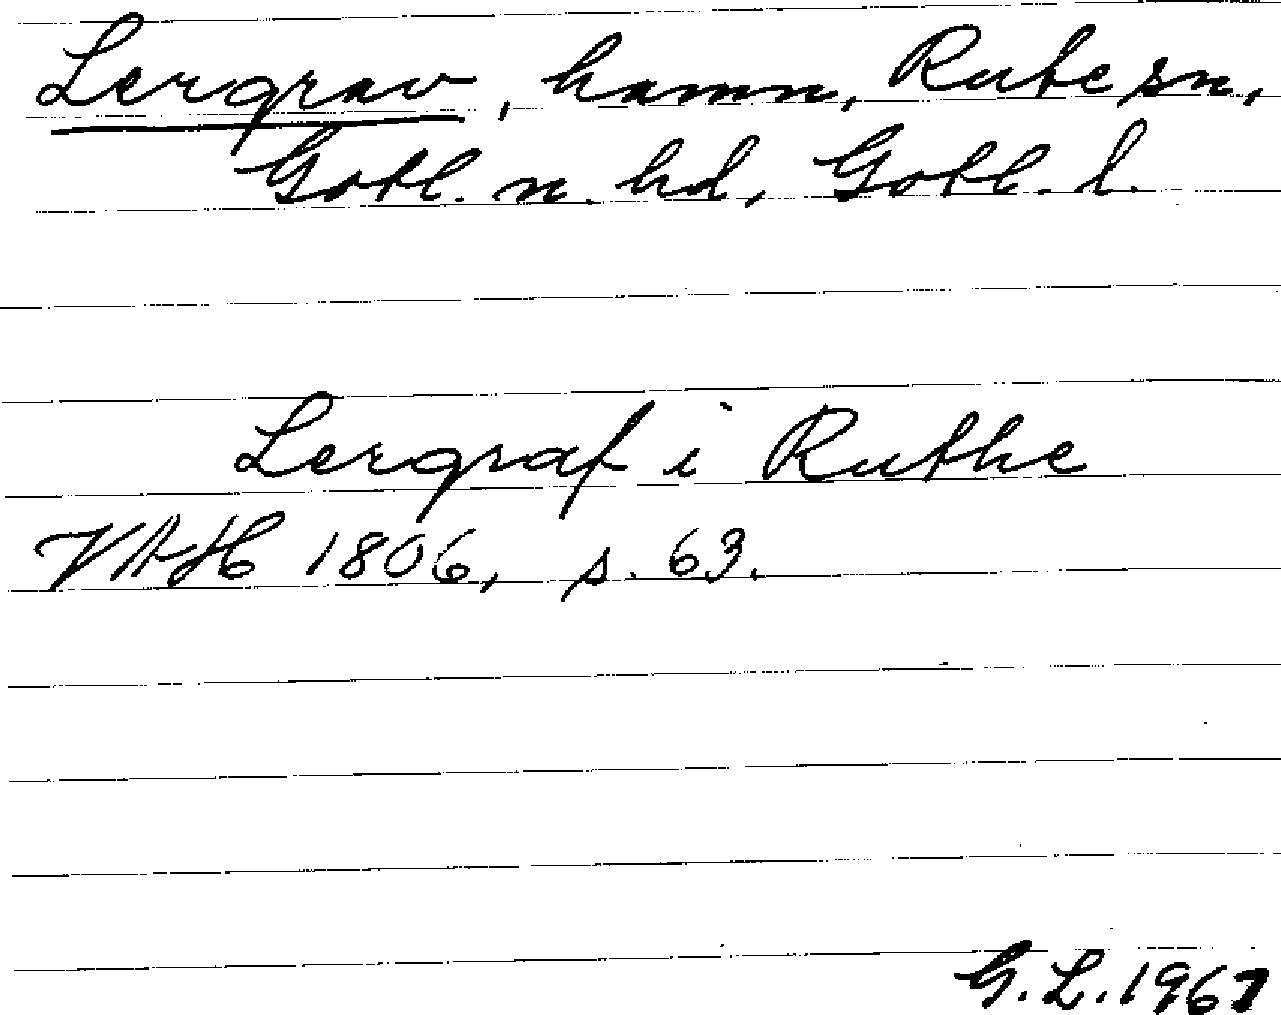 Lergrav, hamn, Rute sn,
Gotl. n. hd, Gotl. l.
Lergraf i Ruthe
VAH 1806, s. 63.
G. L. 1967